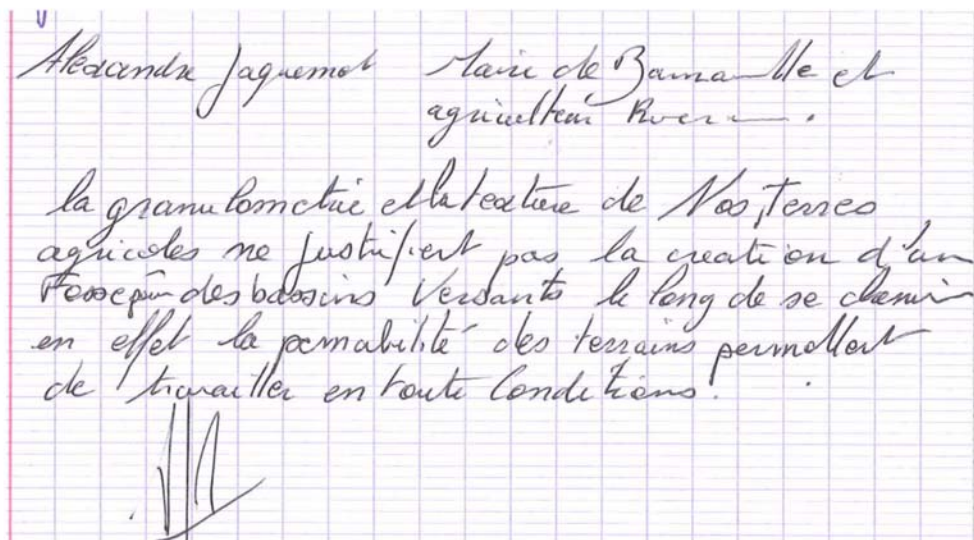 Alexandre Jaquemot Maire de et
agriculteur
la granulometrie et la texture de Nos Terres
agricoles ne justifient pas la creation d'un
Fossé des bassins Versants le long de se chemin
en effet la permabilité des terrains permettent
de travailler en toute Conditions.